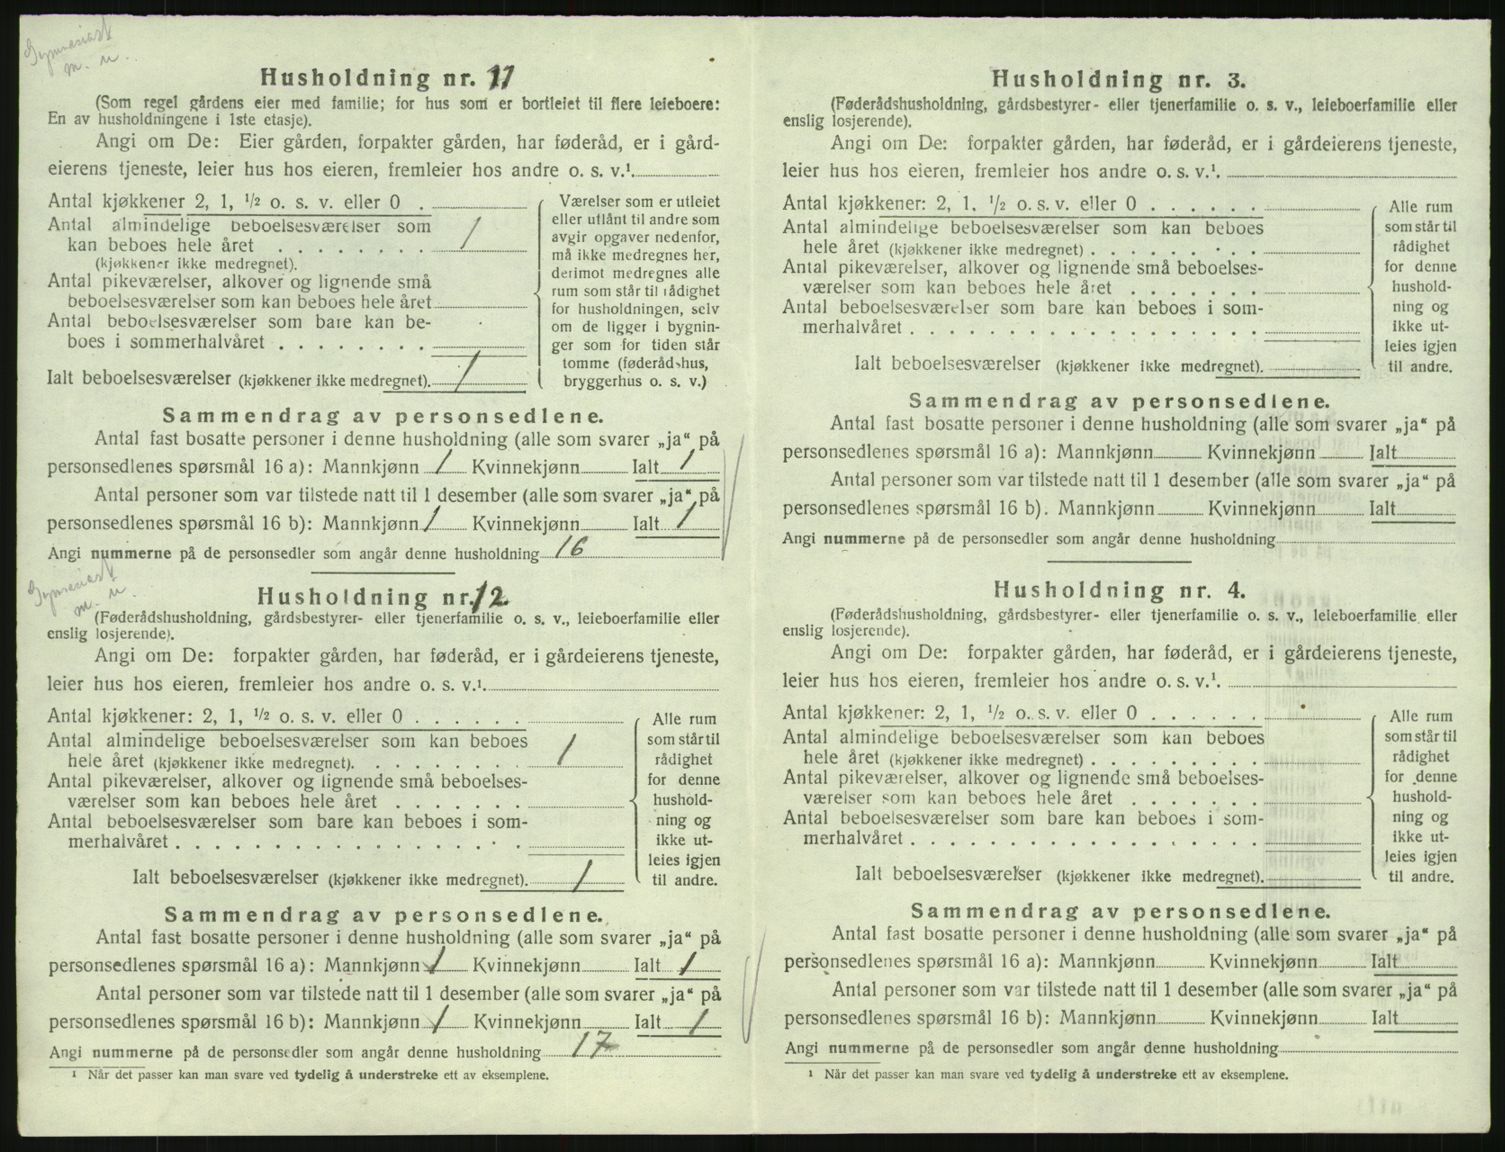 Gymnasiast
m. u.
Husholdning nr. 11
(Som regel gårdens eier med familie; for hus som er bortleiet til flere leieboere:
En av husholdningene i 1ste etasje).
Angi om De: Eier gården, forpakter gården, har føderåd, er i gård-
eierens tjeneste, leier hus hos eieren, fremleier hos andre o. s. v.¹.
Antal kjøkkener 2, 1, ½ o. s. v. eller 0 .
Antal almindelige beboelsesværelser som
kan beboes hele året . . . . . . . . 1
(kjøkkener ikke medregnet).
Antal pikeværelser, alkover og lignende små
beboelsesværelser som kan beboes hele året
Antal beboelsesværelser som bare kan be-
boes i sommerhalvåret . . . . . . .
Ialt beboelsesværelser (kjøkkener ikke medregnet). 1
Værelser som er utleiet
eller utlånt til andre som
avgir opgaver nedenfor,
må ikke medregnes her,
derimot medregnes alle
rum som står til rådighet
for husholdningen, selv
om de ligger i bygnin-
ger som for tiden står
tomme (føderådshus,
bryggerhus o. s. v.)
Sammendrag av personsedlene.
Antal fast bosatte personer i denne husholdning (alle som svarer „ja“ på
personsedlenes spørsmål 16 a): Mannkjønn 1 Kvinnekjønn Ialt 1
Antal personer som var tilstede natt til 1 desember (alle som svarer „ja“ på
personsedlenes spørsmål 16 b): Mannkjønn 1 Kvinnekjønn Ialt 1
Angi nummerne på de personsedler som angår denne husholdning 16
Gymnasiast
m. u.
Husholdning nr. 12
(Føderådshusholdning, gårdsbestyrer- eller tjenerfamilie o. s. v., leieboerfamilie eller
enslig losjerende).
Angi om De: forpakter gården, har føderåd, er i gårdeierens tjeneste,
leier hus hos eieren, fremleier hos andre o. s. v.¹.
Antal kjøkkener: 2, 1, ½ o. s. v. eller 0 . . . . . .
Antal almindelige beboelsesværelser som kan beboes
hele året (kjøkkener ikke medregnet). . . . . . . . . 1
Antal pikeværelser, alkover og lignende små beboelses-
værelser som kan beboes hele året . . . . . . .
Antal beboelsesværelser som bare kan beboes i som-
merhalvåret . . . . . . . . . . . . . . . . .
Ialt beboelsesværelser (kjøkkener ikke medregnet). 1
Alle rum
som står til
rådighet
for denne
hushold-
ning og
ikke ut-
leies igjen
til andre.
Sammendrag av personsedlene.
Antal fast bosatte personer i denne husholdning (alle som svarer „ja“ på
personsedlenes spørsmål 16 a): Mannkjønn 1 Kvinnekjønn Ialt 1
Antal personer som var tilstede natt til 1 desember (alle som svarer „ja“ på
personsedlenes spørsmål 16 b): Mannkjønn 1 Kvinnekjønn Ialt 1
Angi nummerne på de personsedler som angår denne husholdning 17
¹ Når det passer kan man svare ved tydelig å understreke ett av eksemplene.
Husholdning nr. 3.
(Føderådshusholdning, gårdsbestyrer- eller tjenerfamilie o. s. v., leieboerfamilie eller
enslig losjerende).
Angi om De: forpakter gården, har føderåd, er i gårdeierens tjeneste,
leier hus hos eieren, fremleier hos andre o. s. v.¹.
Antal kjøkkener: 2, 1, ½ o. s. v. eller 0 . . . . . .
Antal almindelige beboelsesværelser som kan beboes
hele året (kjøkkener ikke medregnet) . . . . . . . . .
Antal pikeværelser, alkover og lignende små beboelses-
værelser som kan beboes hele året . . . . . . .
Antal beboelsesværelser som bare kan beboes i som-
merhalvåret . . . . . . . . . . . . . . . . .
Ialt beboelsesværelser (kjøkkener ikke medregnet).
Alle rum
som står til
rådighet
for denne
hushold-
ning og
ikke ut-
leies igjen
til andre.
Sammendrag av personsedlene.
Antal fast bosatte personer i denne husholdning (alle som svarer „ja“ på
personsedlenes spørsmål 16 a): Mannkjønn Kvinnekjønn Ialt
Antal personer som var tilstede natt til 1 desember (alle som svarer „ja“ på
personsedlenes spørsmål 16 b). Mannkjønn Kvinnekjønn Ialt
Angi nummerne på de personsedler som angår denne husholdning
Husholdning nr. 4.
(Føderådshusholdning, gårdsbestyrer- eller tjenerfamilie o. s. v., leieboerfamilie eller
enslig losjerende).
Angi om De: forpakter gården, har føderåd, er i gårdeierens tjeneste,
leier hus hos eieren, fremleier hos andre o. s. v.¹.
Antal kjøkkener: 2, 1, ½ o. s. v. eller 0 . . . . . .
Antal almindelige beboelsesværelser som kan beboes
hele året (kjøkkener ikke medregnet) . . . . . . . . .
Antal pikeværelser, alkover og lignende små beboelses-
værelser som kan beboes hele året . . . . . . .
Antal beboelsesværelser som bare kan beboes i som-
merhalvåret . . . . . . . . . . . . . . . . .
Ialt beboelsesværelser (kjøkkener ikke medregnet).
Alle rum
som står til
rådighet
for denne
hushold-
ning og
ikke ut-
leies igjen
til andre.
Sammendrag av personsedlene.
Antal fast bosatte personer i denne husholdning (alle som svarer „ja“ på
personsedlenes spørsmål 16 a): Mannkjønn Kvinnekjønn Ialt
Antal personer som var tilstede natt til 1 desember (alle som svarer „ja“ på
personsedlenes spørsmål 16 b): Mannkjønn Kvinnekjønn Ialt
Angi nummerne på de personsedler som angår denne husholdning
¹ Når det passer kan man svare ved tydelig å understreke ett av eksemplene.